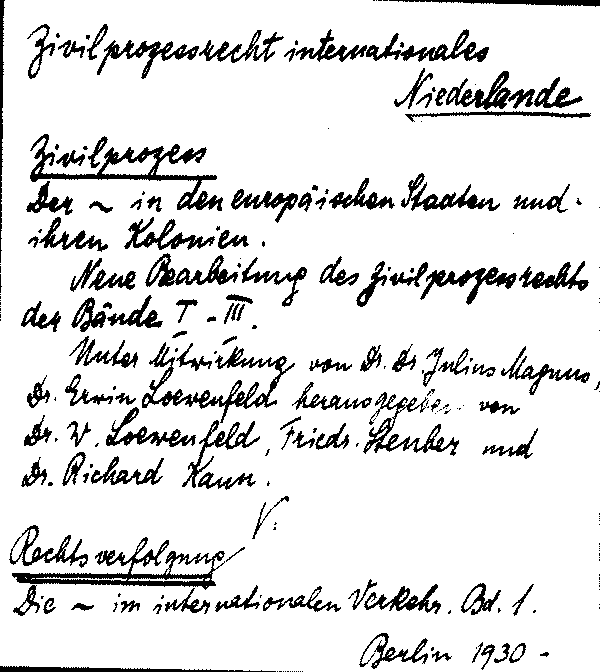 Zivilprozessrecht internationales
Niederlande
Zivilprozess
Der ~ in den europäischen Staaten und
ihren Kolonien.
Neue Bearbeitung des Zivilprozessrechts
der Bände I - III.
Unter Mitwirkung von Dr. Dr. Julius Magnus,
Dr. Erwin Loewenfeld herausgegeben von
Dr. W. Loewenfeld, Friedr. Stenber und
Dr. Richard Kann.
V.
Rechtsverfolgung
Die ~ im internationalen Verkehr. Bd. 1.
Berlin 1930 -